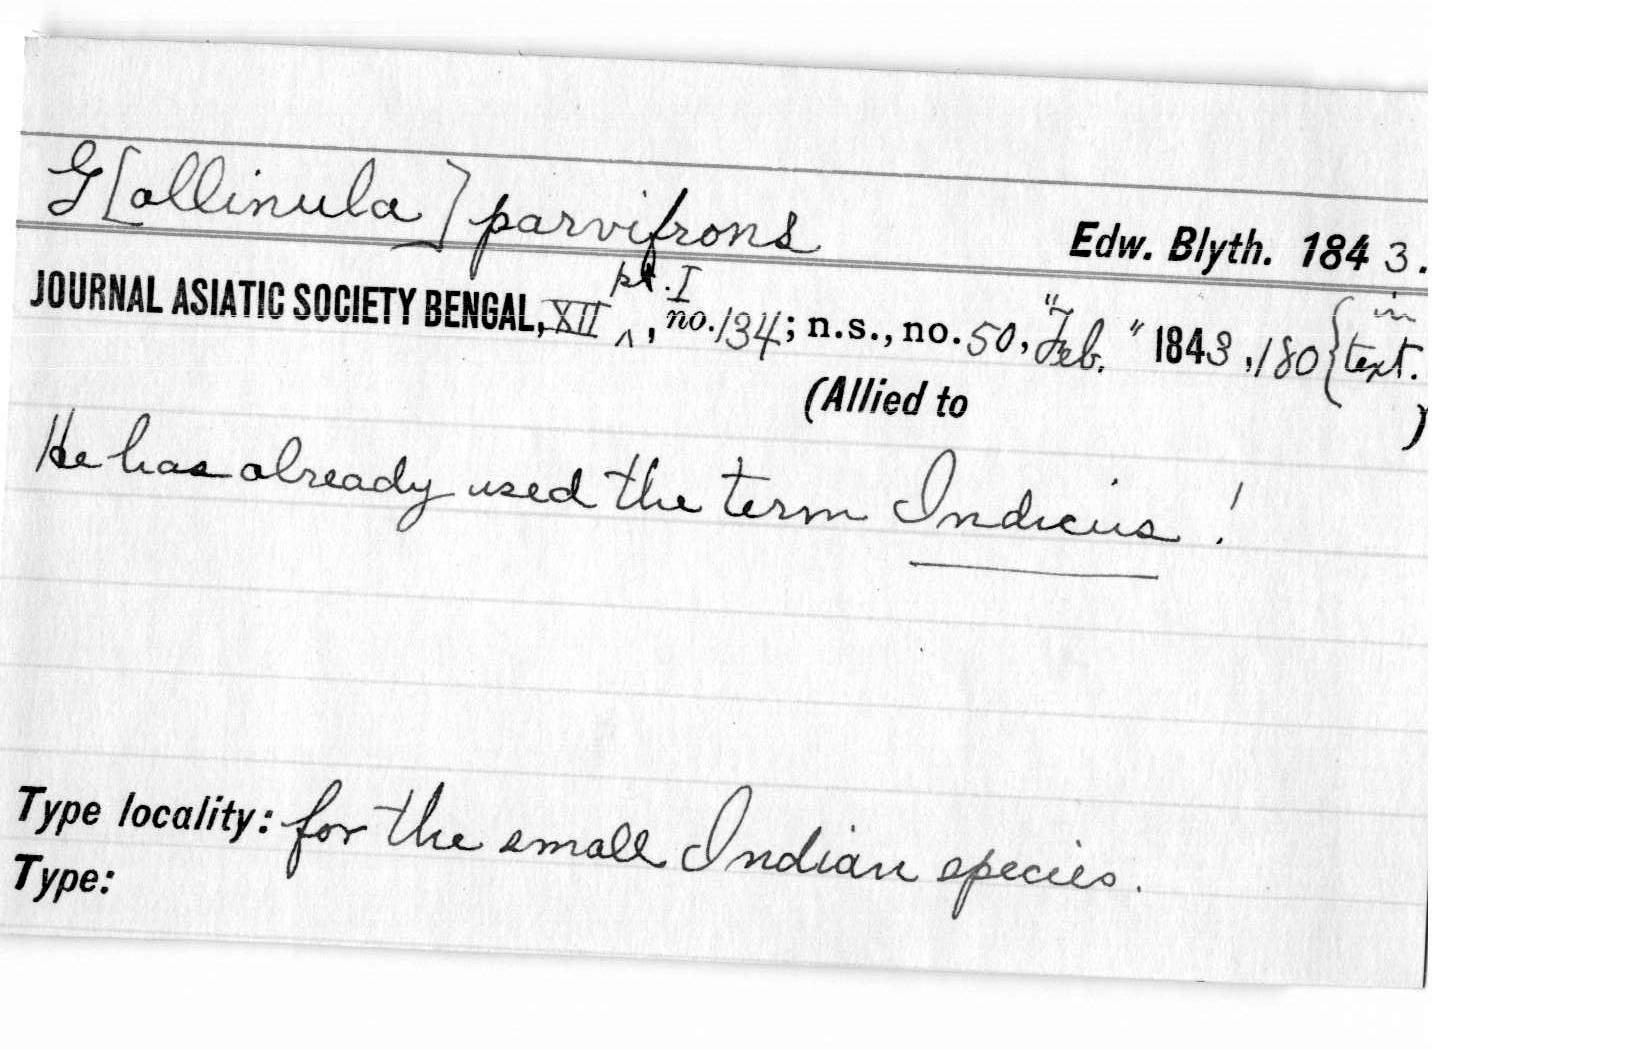 G[allinula] parvifrons Edw. Blyth. 1843.
JOURNAL ASIATIC SOCIETY BENGAL, XII pt. I, no. 134; n.s., no. 50, "Feb." 1843, 180 {in text.
(Allied to )
He has already used the term Indicus!
Type locality: for the small Indian species.
Type: